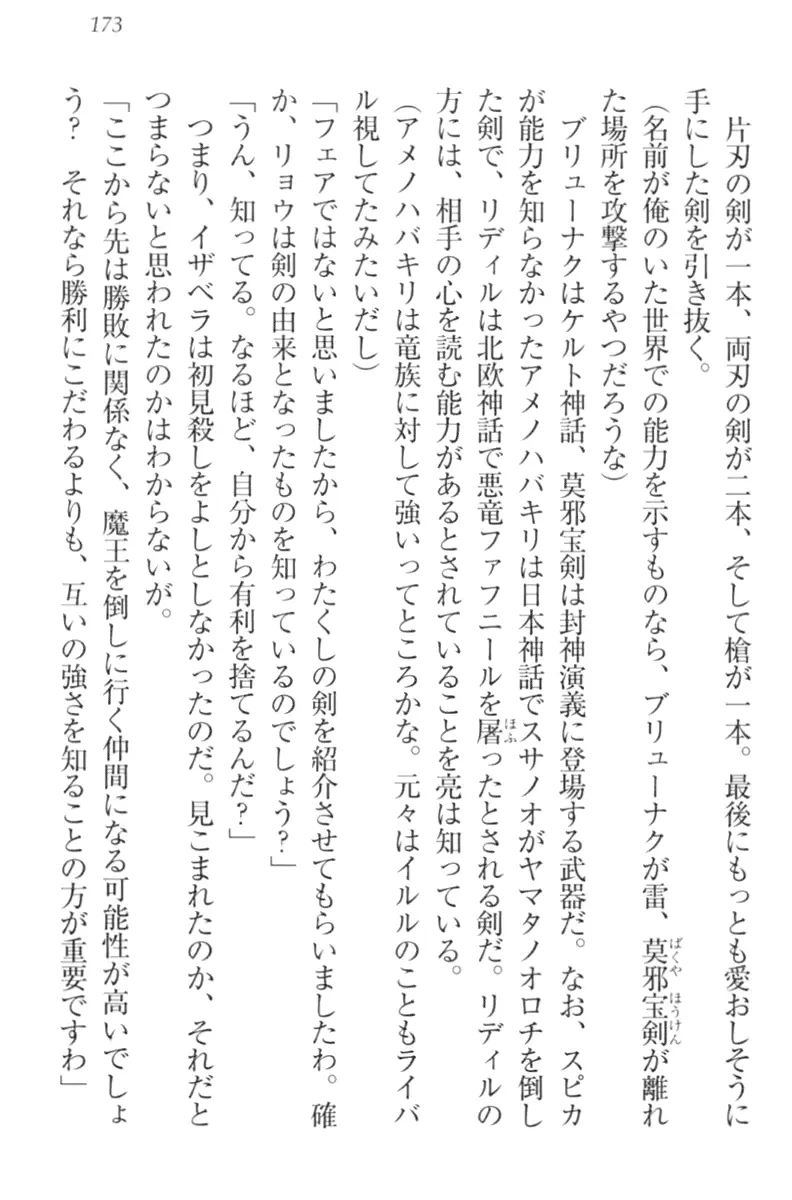 173
片刃の剣が一本、両刃の剣が二本、そして槍が一本。最後にもっとも愛おしそうに
手にした剣を引き抜く。
(名前が俺のいた世界での能力を示すものなら、ブリューナクが雷、莫邪宝剣が離れ
た場所を攻撃するやつだろうな)
ブリューナクはケルト神話、莫邪宝剣は封神演義に登場する武器だ。なお、スピカ
が能力を知らなかったアメノハバキリは日本神話でスサノオがヤマタノオロチを倒し
た剣で、リディルは北欧神話で悪竜ファフニールを屠ったとされる剣だ。リディルの
方には、相手の心を読む能力があるとされていることを亮は知っている。
(アメノハバキリは竜族に対して強いってところかな。元々はイルルのこともライバ
ル視してたみたいだし)
「フェアではないと思いましたから、わたくしの剣を紹介させてもらいましたわ。確
か、リョウは剣の由来となったものを知っているのでしょう?」
「うん、知ってる。なるほど、自分から有利を捨てるんだ?」
つまり、イザベラは初見殺しをよしとしなかったのだ。見こまれたのか、それだと
つまらないと思われたのかはわからないが。
「ここから先は勝敗に関係なく、魔王を倒しに行く仲間になる可能性が高いでしょ
う? それなら勝利にこだわるよりも、互いの強さを知ることの方が重要ですわ」
ばくや ほうけん
ほふ